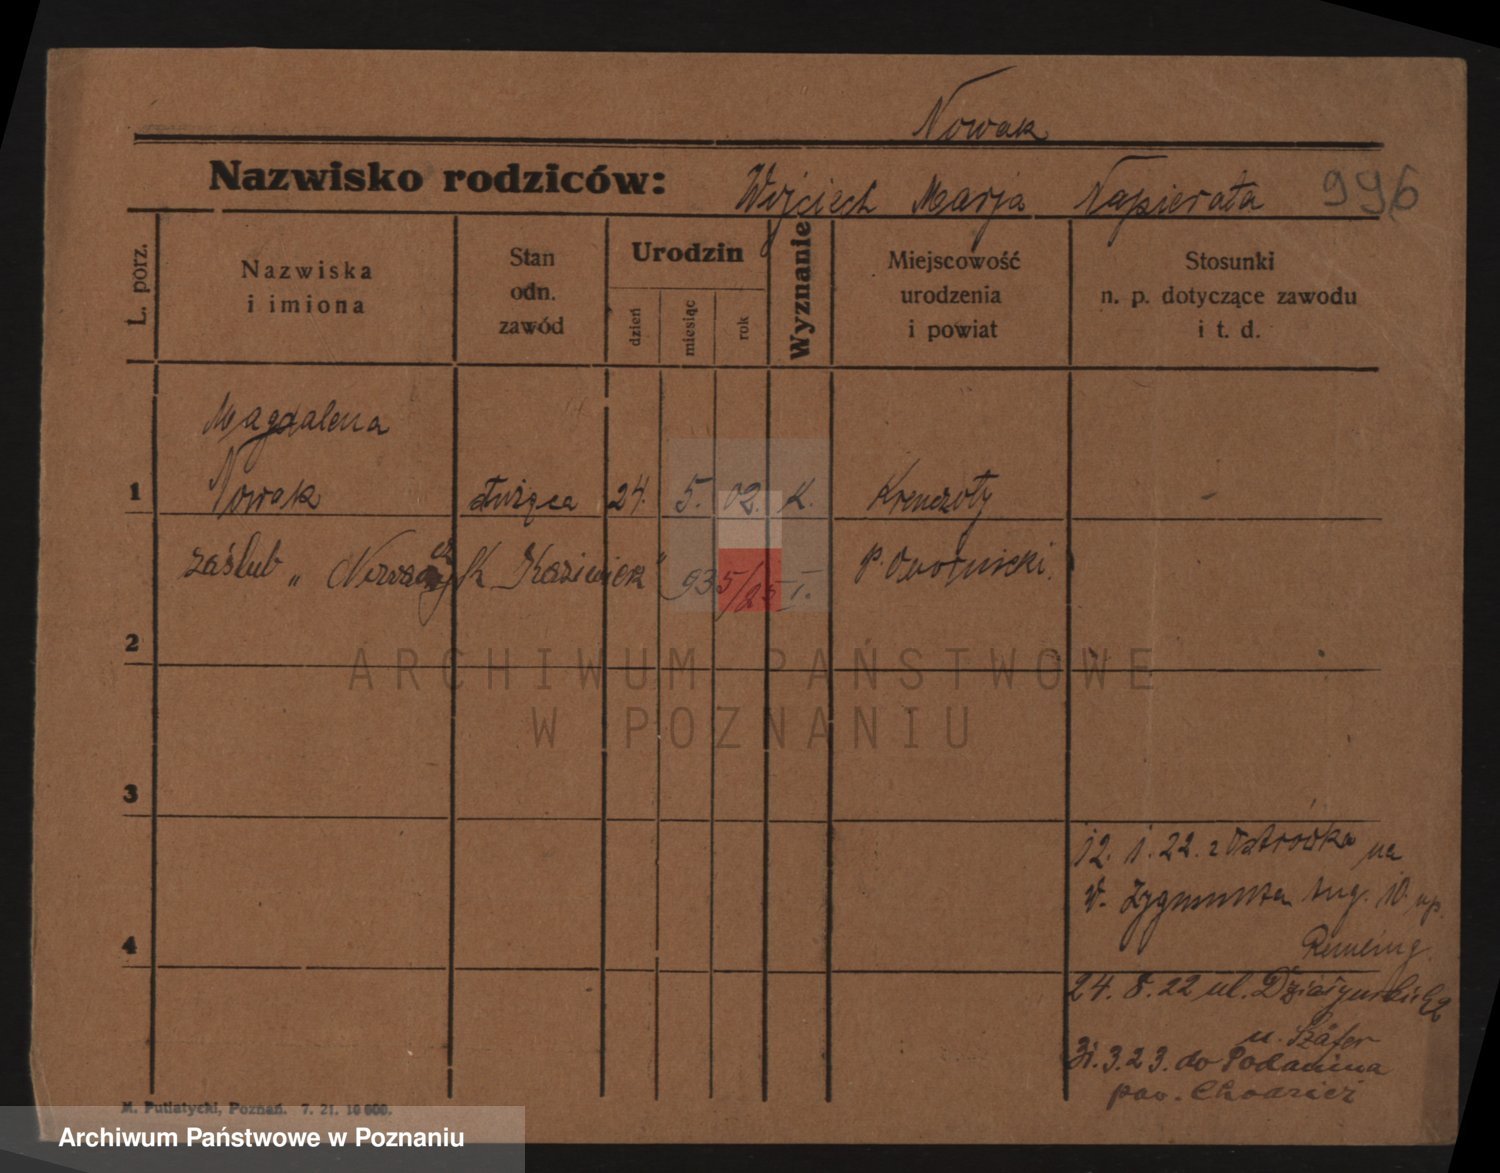 Nowak
Nazwisko rodziców: Wojciech Marja Napierała 996
L. porz.
Nazwiska
i imiona
Stan
odn.
zawód
Urodzin
dzień
miesiąc
rok
Wyznanie
Miejscowość
urodzenia
i powiat
Stosunki
n. p. dotyczące zawodu
i t. d.
Magdalena
1 Nowak służąca 24. 5. 02. K. -
zaślub „ Kazimierz” 935/25 I.
2
ARCHIWUM PAŃSTWOWE
W POZNANIU
3
12. 1. 22. z Ostrówka na
Zygmunta Aug. 10
4
24. 8. 22 ul.
u. Szäfer
31. 3. 23. do Podanina
pow. Chodzież
M. Putiatycki, Poznań. 7. 21. 10 000.
Archiwum Państwowe w Poznaniu